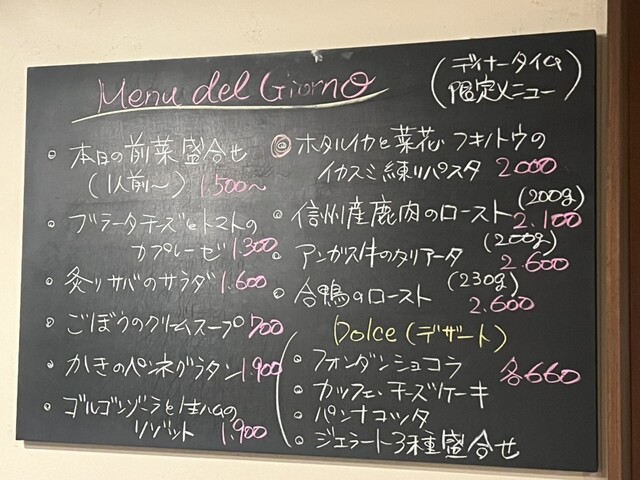 Menu del Giorno
(ディナータイム
限定メニュー)
・本日の前菜盛合せ
(1人前〜) 1.500〜
・ブラータチーズとトマトの
カプレーゼ 1.300
・炙りサバのサラダ 1.600
・ごぼうのクリームスープ 700
・かきのペンネグラタン 1.900
・ゴルゴンゾーラと生ハムの
リゾット 1.900
◎ホタルイカと菜花・フキノトウの
イカスミ練りパスタ 2000
・信州産鹿肉のロースト (200g) 2.100
・アンガス牛のタリアータ (200g) 2.600
・合鴨のロースト (230g) 2.600
Dolce (デザート)
・フォンダンショコラ
・カッフェ・チーズケーキ
・パンナコッタ
・ジェラート3種盛合せ
各660